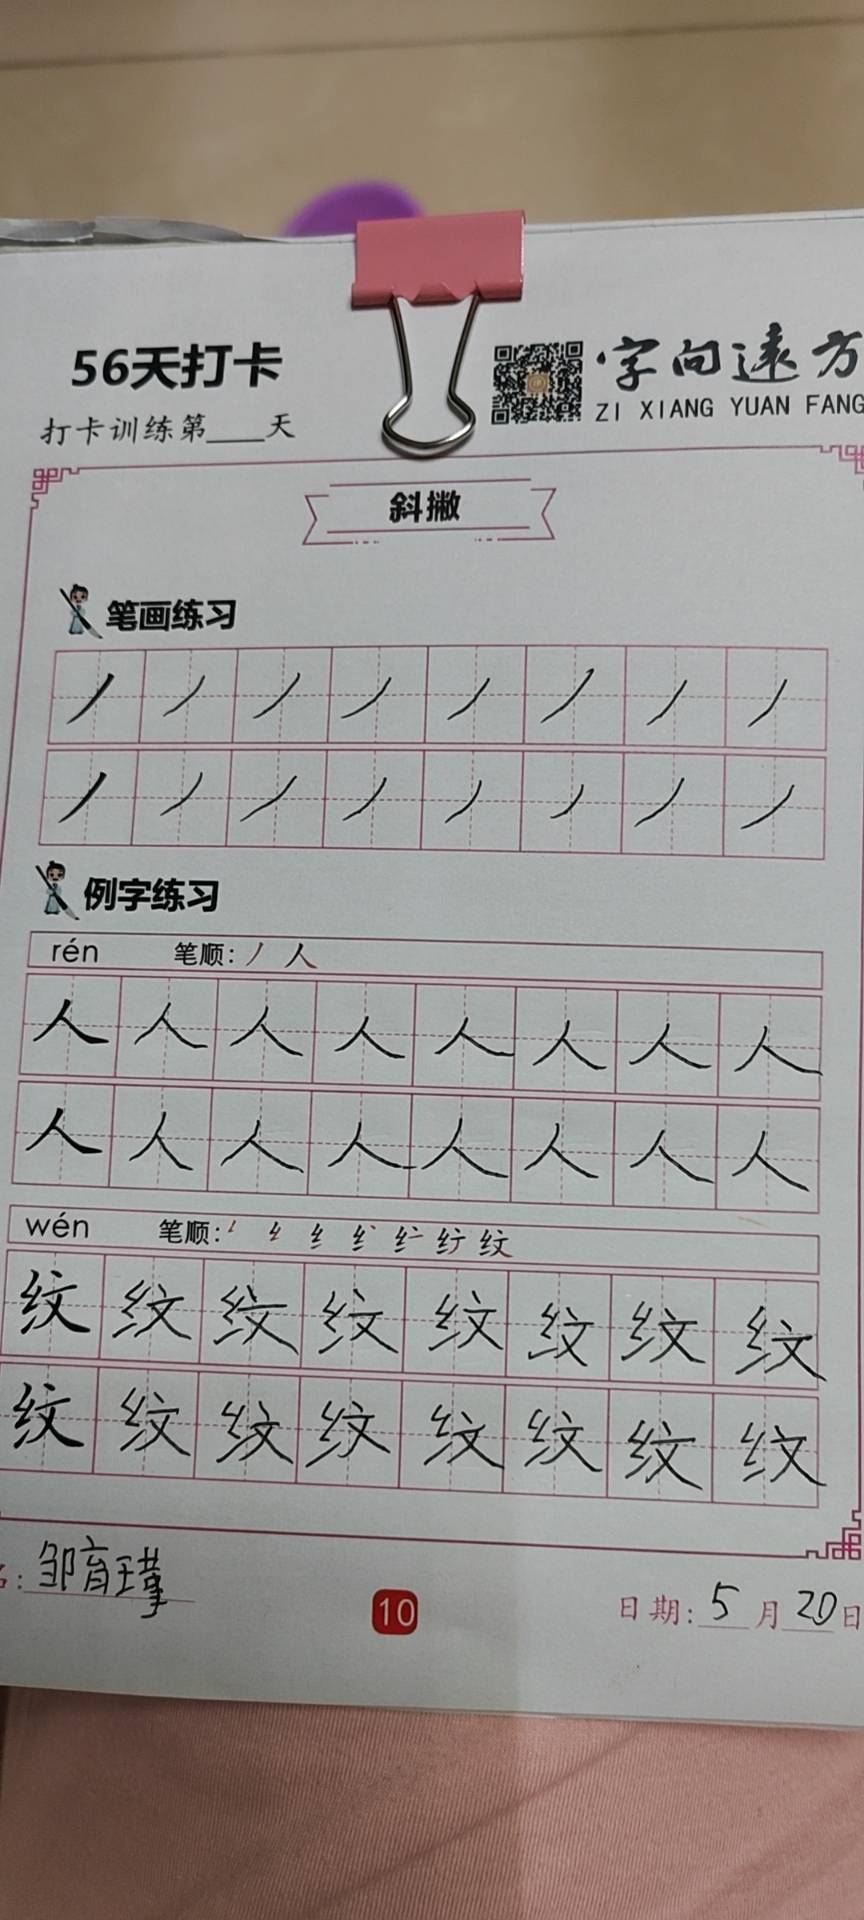 56天打卡
打卡训练第____天
字向远方
ZI XIANG YUAN FANG
斜撇
笔画练习
丿 丿 丿 丿 丿 丿 丿 丿
丿 丿 丿 丿 丿 丿 丿 丿
例字练习
rén 笔顺: 丿 人
人 人 人 人 人 人 人 人
人 人 人 人 人 人 人 人
wén 笔顺: 纹
纹 纹 纹 纹 纹 纹 纹 纹
纹 纹 纹 纹 纹 纹 纹 纹
名: 邹育瑾
10
日期: 5 月 20 日